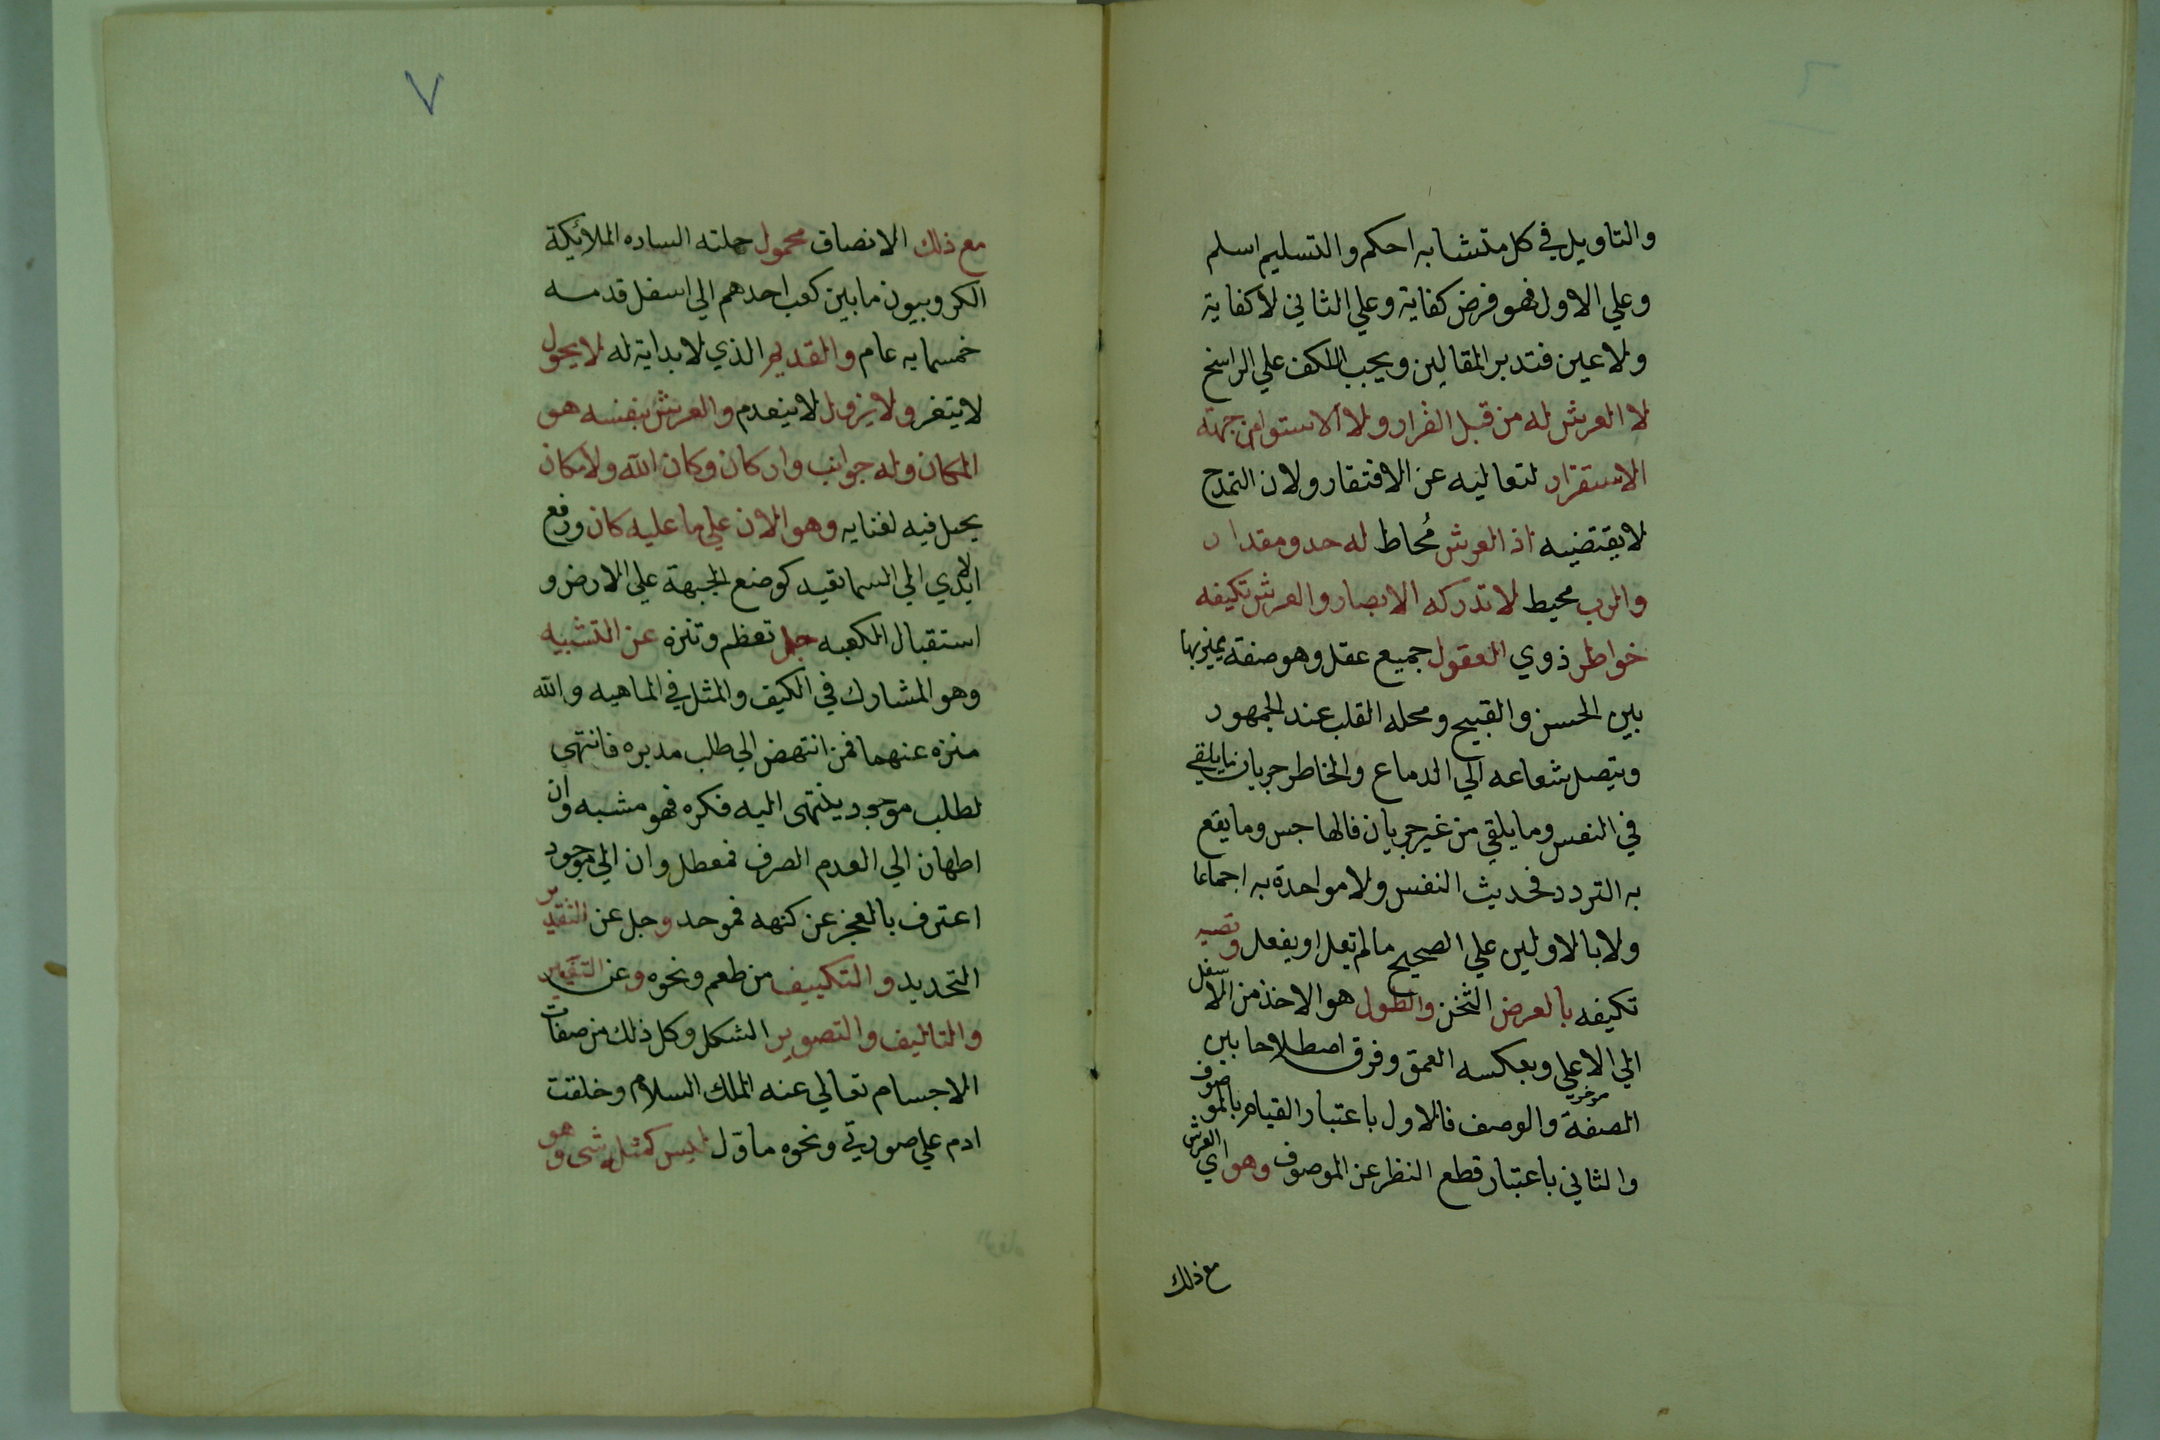 والتاويل في كل متشابه احكم والتسليم اسلم
وعلي الاول فهو فرض كفاية وعلي الثاني لاكفاية
ولاعين فتدبر المقالين ويجب الكف علي الراسخ
لا العرش له من قبل القرار ولا الاستوا من جهة
الاستقرار لتعاليه عن الافتقار ولان التمدح
لايقتضيه اذ العرش مُحاط له حد ومقدار
والرب محيط لاتدركه الابصار والعرش تكيفه
خواطر ذوي العقول جميع عقل وهو صفة يميز بها
بين الحسن والقبيح ومحله القلب عند الجمهور
ويتصل شعاعه الي الدماع والخاطر جريان مايلقي
في النفس ومايلقي من غير جريان فالهاجس ومايقع
به التردد فحديث النفس ولامواخذة به اجماعا
ولابالاولين علي الصحيح مالم يعل اويفعل وتصيه
تكيفه بالعرض الثخن والطول هو الاخذ من الاسفل
الي الاعلي وبعكسه العمق وفرق اصطلاحا بين
الصفة والوصف فالاول باعتبار القيام بالموصوف
والثاني باعتبار قطع النظر عن الموصوف وهو اي العرش
مع ذلك
٧
مع ذلك الانصاف محمول حملته الساده الملائكة
الكروبيون مابين كعب احدهم الي اسفل قدمه
خمسمايه عام والقديم الذي لابداية له لايحول
لايتغر ولايزول لاينعدم والعرش بنفسه هو
المكان وله جوانب واركان وكان الله ولامكان
يحل فيه لغنايه وهو الان علي ماعليه كان ورفع
الايدي الي السما تعبد كوضع الجبهة علي الارض و
استقبال الكعبه جل تعظم وتنزه عن التشبيه
وهو المشارك في الكيف والمثل في الماهيه والله
منزه عنهما فمن انتهض الي طلب مدبره فانتهى
لطلب موجود ينتهى اليه فكره فهو مشبه وان
اطمان الي العدم الصرف فمعطل وان الي موجود
اعترف بالعجز عن كنهه فموحد وجل عن التقدير
التحديد والتكييف من طعم ونحوه وعن التغيير
والتاليف والتصوير الشكل وكل ذلك من صفات
الاجسام تعالي عنه الملك السلام وخلقت
ادم علي صورتي ونحوه ماوّل ليس كمثله شي وهو